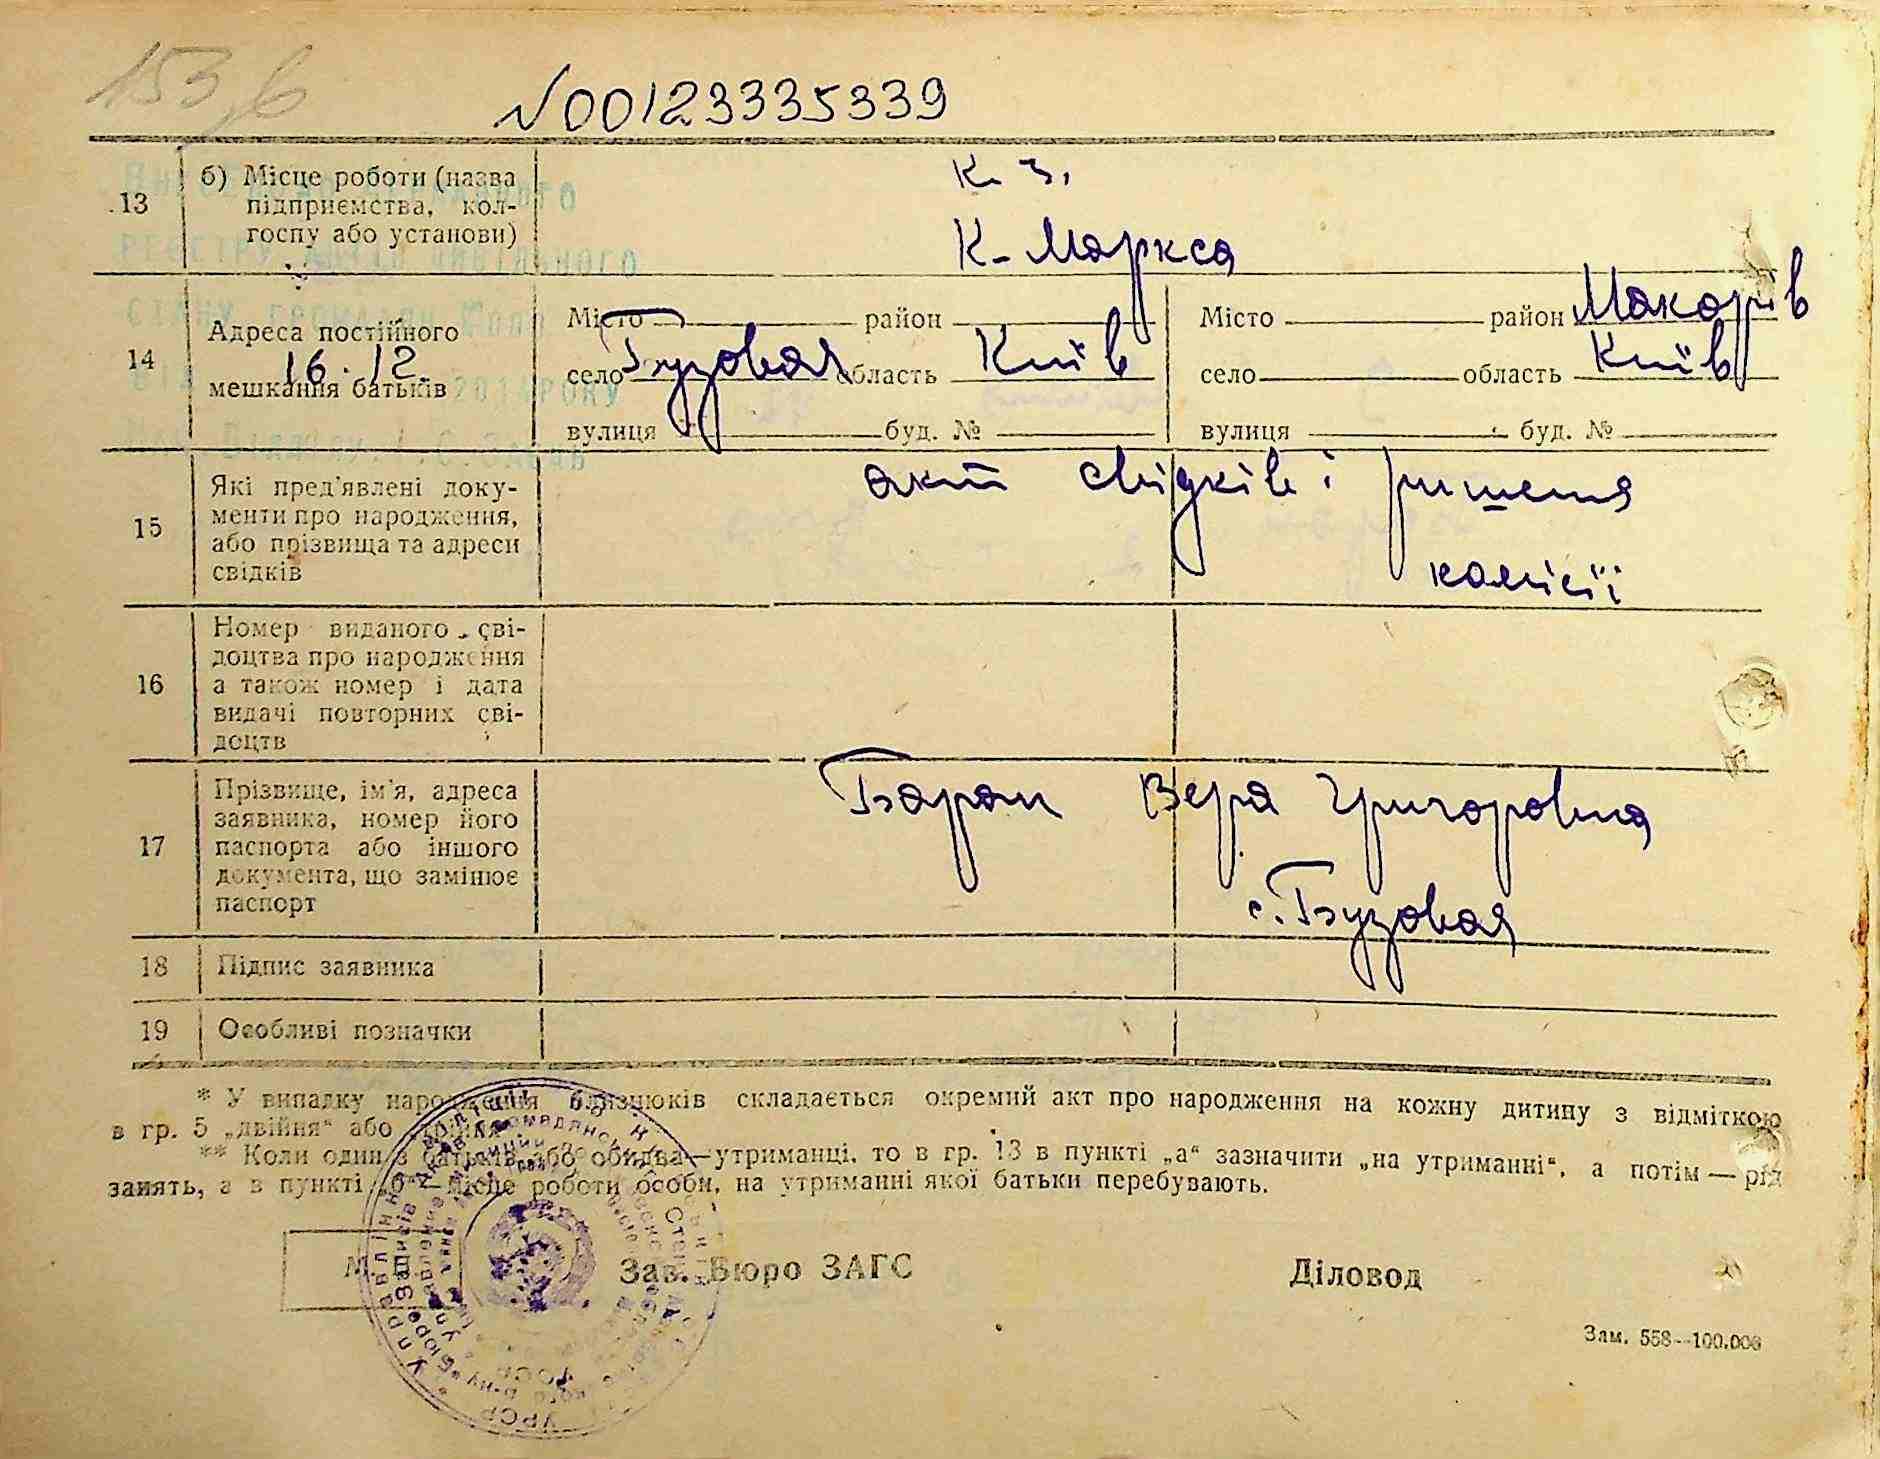 153 б
N00123335339
13
б) Місце роботи (назва
підприємства, кол-
госпу або установи)
к. з.
К-Маркса
14
Адреса постійного
мешкання батьків
16.12.
Місто район
село Бузовая область Київ
вулиця буд. №
Місто район Макарів
село область Київ
вулиця буд. №
15
Які пред'явлені доку-
менти про народження,
або прізвища та адреси
свідків
акт свідків і ришення
комісії
16
Номер виданого сві-
доцтва про народження
а також номер і дата
видачі повторних сві-
доцтв
17
Прізвище, ім'я, адреса
заявника, номер його
паспорта або іншого
документа, що замінює
паспорт
Баран Вера Григоровна
с. Бузовая
18
Підпис заявника
19
Особливі позначки
* У випадку народження близнюків складається окремий акт про народження на кожну дитину з відміткою
в гр. 5 „двійня“ або
** Коли один з батьків або обидва—утриманці, то в гр. 13 в пункті „а“ зазначити „на утриманні“, а потім — рід
занять, а в пункті „б“—місце роботи особи, на утриманні якої батьки перебувають.
М.
Зав. Бюро ЗАГС
Діловод
Зам. 558—100.000